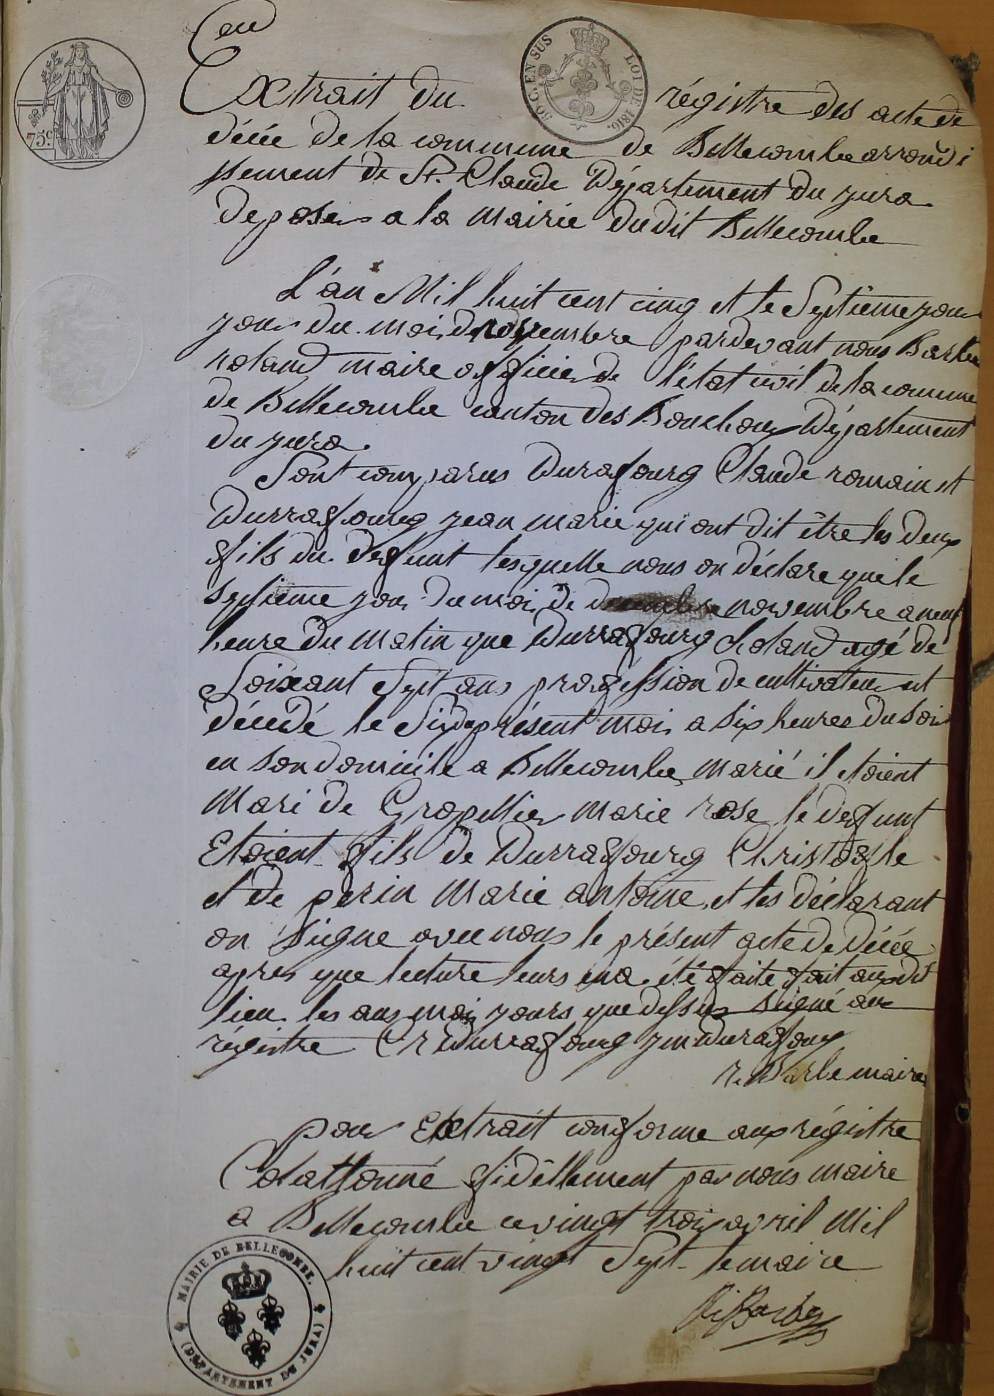 75c.
10 C. EN SUS LOI DE 1816.
Extrait du régistre des acte de
décée de la commune de Bellecombe arrondi
ssement de St. Claude Département du jura
deposés a la mairie dudit Bellecombe
L'an Mil huit cent cinq et le Septieme jour
jour du moi de novembre pardevant nous Barbe
roland maire officier de l'état civil de la comune
de Bellecombe canton des Bouchoux Département
du jura.
Sont comparus Durafourg Claude romain et
Durraffourg jean marie qui ont dit être les deux
fils du defunt lesquelle nous on déclare que le
septieme jour du moi de novembre a neuf
heure du matin que Durraffourg Roland agé de
Soixant Sept ans profession de cultivateur est
décédé le Six du présent moi a six heures du soir
en son domicile a Bellecombe marié il etoient
Mari de Gropellier Marie rose le defunt
Etoient fils de Durraffourg Christofle
et de perin Marie antoine, et les déclarant
on Signe avec nous le présent acte de décée
apres que lecture leurs en a été faite fait aux dit
lieu les ans moi jours que dessus Signé au
régistre C R Durraffourg jm Duraffourg
r. Barbe maire
pour Extrait conforme aux régistre
Colattonné fidèllement par nous maire
a Bellecombe ce vingt trois avril Mil
huit cent vingt Sept le maire
MAIRIE DE BELLECOMBE.
(DÉPARTEMENT DU JURA)